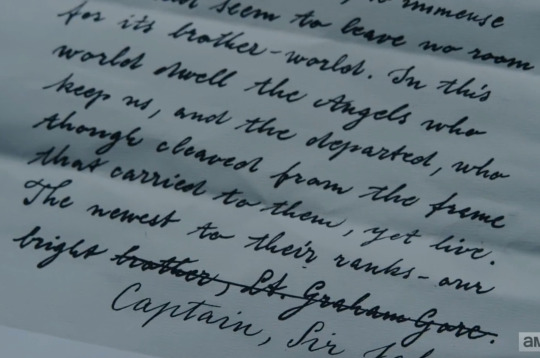 immense
seem to leave no room
for its brother-world. In this
world dwell the Angels who
keep us, and the departed, who
though cleaved from the frame
that carried to them, yet live.
The newest to their ranks - our
bright brother, Lt. Graham Gore.
Captain, Sir